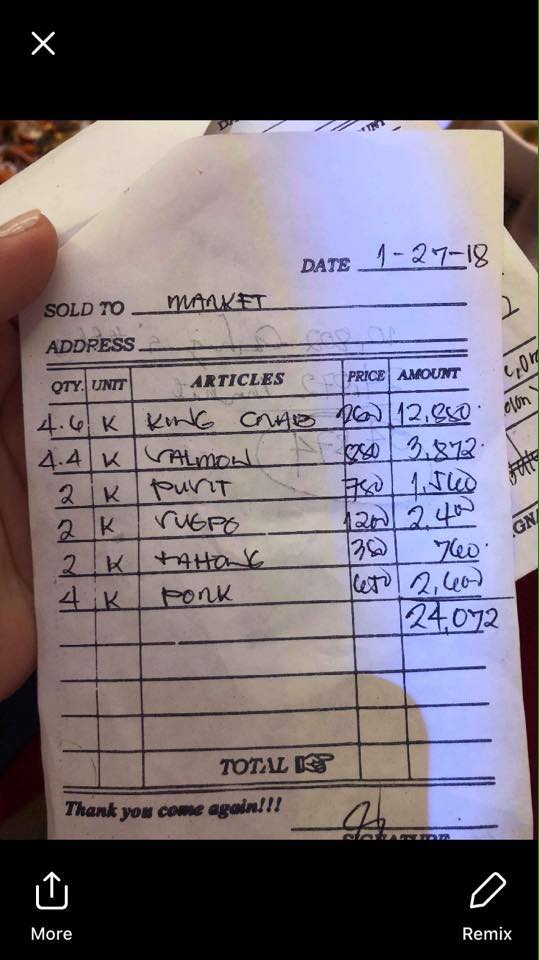 DATE 1-27-18
SOLD TO MARKET
ADDRESS
QTY. UNIT ARTICLES PRICE AMOUNT
4.6 K KING CRAB 2800 12,880
4.4 K SALMON 880 3,872
2 K PUSIT 780 1,560
2 K SUGPO 1200 2,400
2 K TAHONG 380 760
4 K PORK 650 2,600
24,072
TOTAL
Thank you come again!!!
SIGNATURE
More Remix